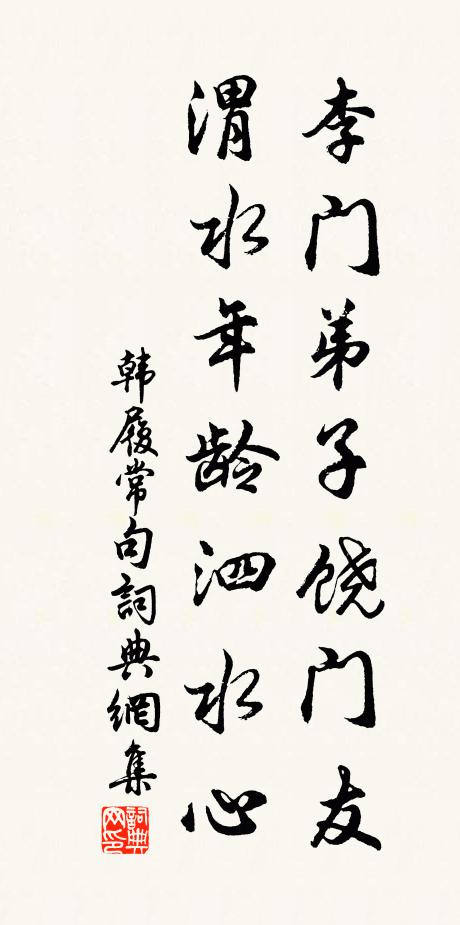 李门弟子饶门友
渭水年龄泗水心
韩履常句詞典網集
詞典网印